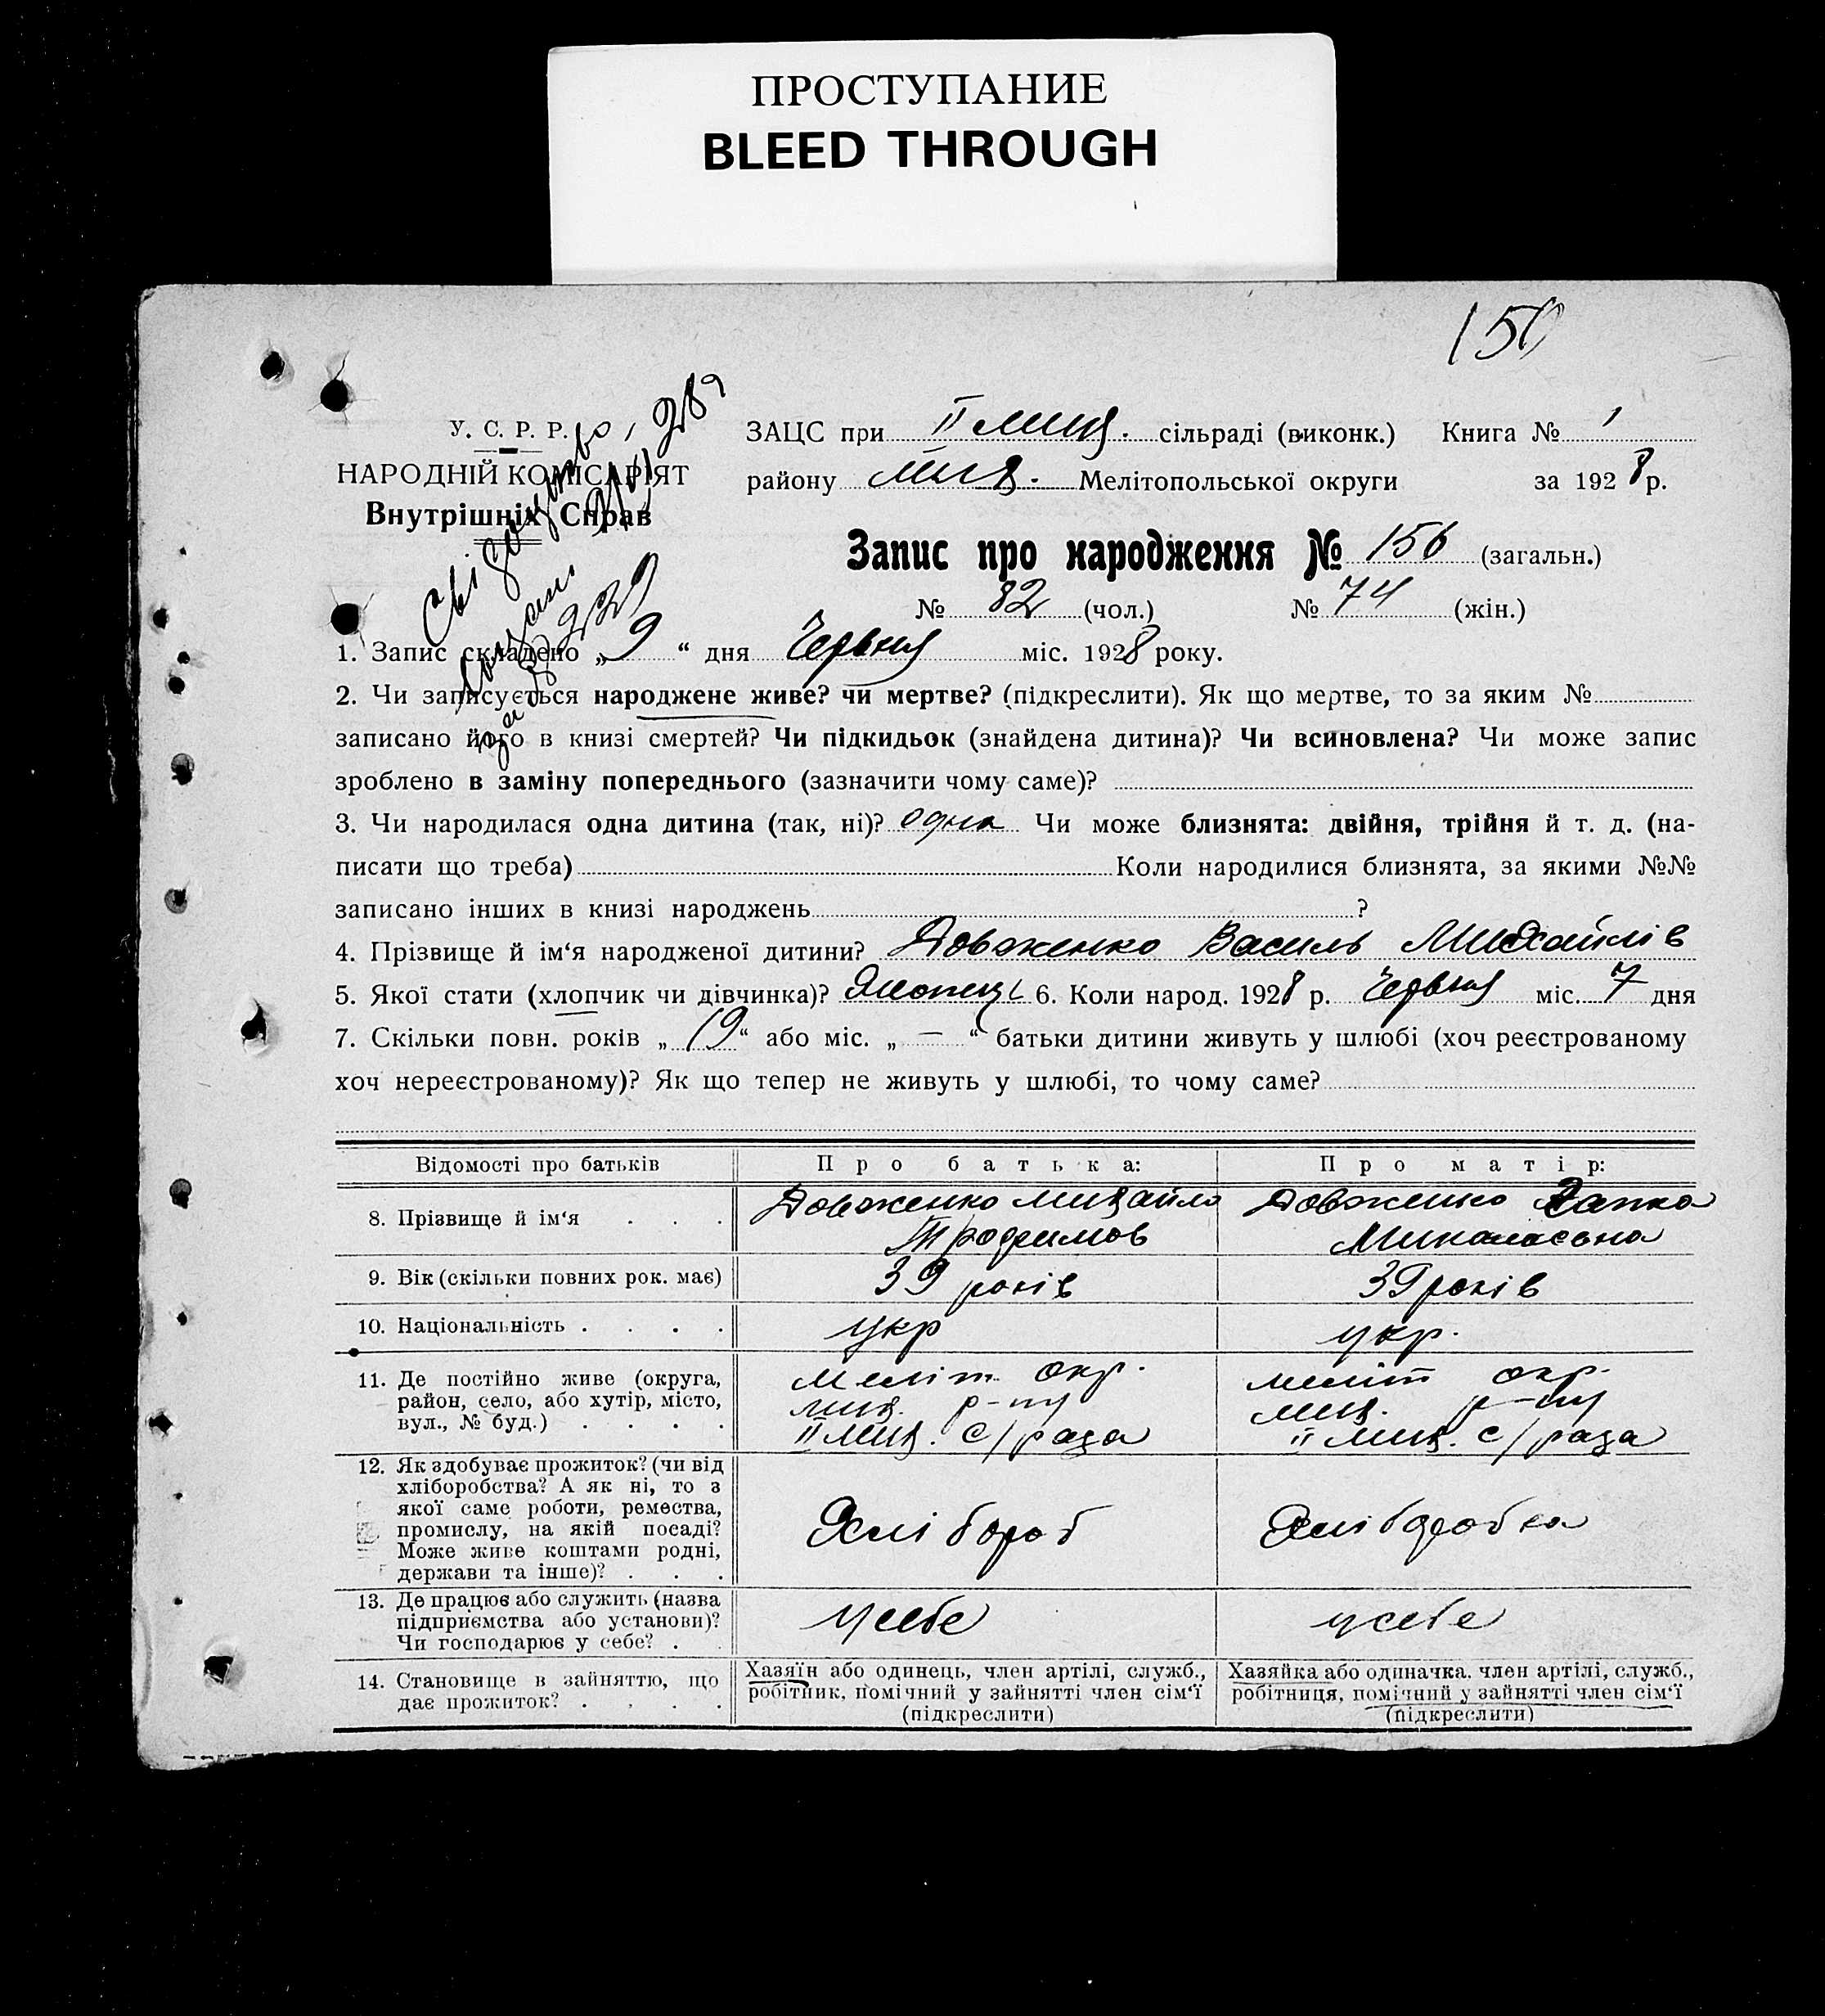 ПРОСТУПАНИЕ
BLEED THROUGH
150
У. С. Р. Р.
НАРОДНІЙ КОМІСАРІЯТ
Внутрішніх Справ
ЗАЦС при II Мих. сільраді (виконк.) Книга № 1
району Мих. Мелітопольської округи за 1928 р.
Запис про народження № 156 (загальн.)
№ 82 (чол.) № 74 (жін.)
1. Запис складено „9“ дня Червня міс. 1928 року.
2. Чи записується народжене живе? чи мертве? (підкреслити). Як що мертве, то за яким №
записано його в книзі смертей? Чи підкидьок (знайдена дитина)? Чи всиновлена? Чи може запис
зроблено в заміну попереднього (зазначити чому саме)?
3. Чи народилася одна дитина (так, ні)? одна Чи може близнята: двійня, трійня й т. д. (на-
писати що треба) Коли народилися близнята, за якими №№
записано інших в книзі народжень ?
4. Прізвище й ім‘я народженої дитини? Довженко Василь Михайлів
5. Якої стати (хлопчик чи дівчинка)? 6. Коли народ. 1928 р. Червня міс. 7 дня
7. Скільки повн. років „19“ або міс. „—“ батьки дитини живуть у шлюбі (хоч реєстрованому
хоч нереєстрованому)? Як що тепер не живуть у шлюбі, то чому саме?
Відомості про батьків Про батька: Про матір:
8. Прізвище й ім‘я . . . Довженко Михайло Довженко
Трофимов Миколаєвна
9. Вік (скільки повних рок. має) 39 років 39 років
10. Національність . . . . укр укр.
11. Де постійно живе (округа, район, село, або хутір, місто, вул., № буд.) . . . .
Меліт. окр. Меліт окр.
Мих. р-ну Мих. р-ну
II Мих. с/рада II Мих. с/рада
12. Як здобуває прожиток? (чи від
хліборобства? А як ні, то з
якої саме роботи, ремества,
промислу, на якій посаді?
Може живе коштами родні,
держави та інше)? . . .
Хлібороб Хліборобка
13. Де працює або служить (назва
підприємства або установи)?
Чи господарює у себе? . .
у себе у себе
14. Становище в зайняттю, що
дає прожиток? . . . .
Хазяїн або одинець, член артілі, служб.,
робітник, помічний у зайнятті член сім‘ї
(підкреслити)
Хазяйка або одиначка, член артілі, служб.,
робітниця, помічний у зайнятті член сім‘ї
(підкреслити)